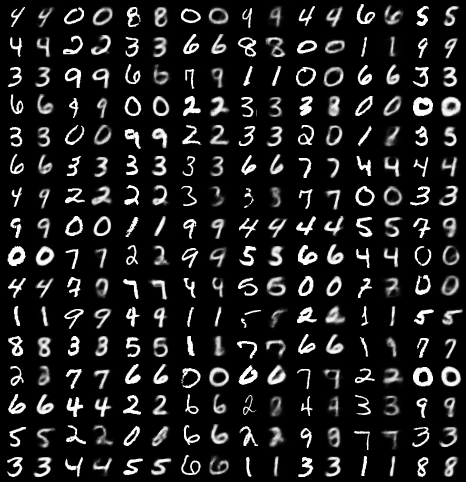 4 4 0 0 8 8 0 0 9 9 4 4 6 6 5 5
4 4 2 2 3 3 6 6 8 8 0 0 1 1 9 9
3 3 9 9 6 6 7 9 1 1 0 0 6 6 3 3
6 6 9 9 0 0 2 2 3 3 3 8 0 0 0 0
3 3 0 0 9 9 2 2 3 3 2 0 1 1 3 5
6 6 3 3 3 3 3 3 6 6 7 7 4 4 4 4
4 9 2 2 2 2 3 3 3 3 7 7 0 0 3 3
9 9 0 0 1 1 9 9 4 4 4 4 5 5 7 9
0 0 7 7 2 2 9 9 5 5 6 6 4 4 0 0
4 4 7 7 7 4 4 5 5 0 0 7 7 0 0
1 1 9 9 4 4 1 1 5 5 2 2 1 1 5 5
8 8 3 3 5 5 1 1 7 7 6 6 1 1 7 7
2 2 7 7 6 6 0 0 0 0 7 9 2 2 0 0
6 6 4 4 2 2 6 6 2 4 4 3 3 9 9
5 5 2 2 0 0 6 6 2 2 9 9 7 7 3 3
3 3 4 4 5 5 6 6 1 1 3 3 1 1 8 8